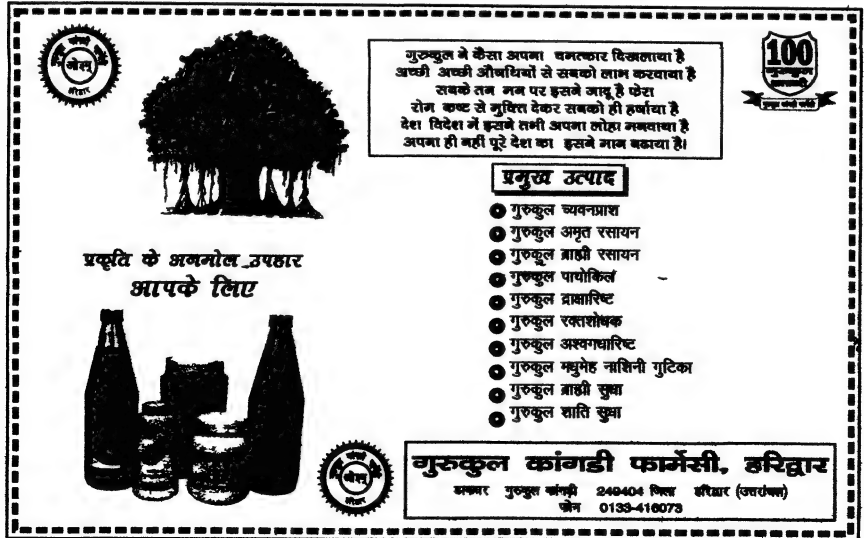 गुरुकुल ने कैसा अपना चमत्कार दिखलाया है
अच्छी अच्छी औषधियों से सबको लाभ करवाया है
सबके तन मन पर इसने जादू है फेरा
रोग कष्ट से मुक्ति देकर सबको ही हर्षाया है
देश विदेश में इसने तभी अपना लोहा मनवाया है
अपना ही नहीं पूरे देश का इसने मान बढाया है।
100
गुरुकुल
प्रमुख उत्पाद
गुरुकुल च्यवनप्राश
गुरुकुल अमृत रसायन
गुरुकुल ब्राह्मी रसायन
गुरुकुल पायोकिल
गुरुकुल द्राक्षारिष्ट
गुरुकुल रक्तशोधक
गुरुकुल अश्वगधारिष्ट
गुरुकुल मधुमेह नाशिनी गुटिका
गुरुकुल ब्राह्मी सुधा
गुरुकुल शाति सुधा
प्रकृति के अनमोल उपहार
आपके लिए
गुरुकुल कांगडी फार्मेसी, हरिद्वार
डाकघर गुरुकुल कांगड़ी 249404 जिला हरिद्वार (उत्तरांचल)
फोन 0133-416073